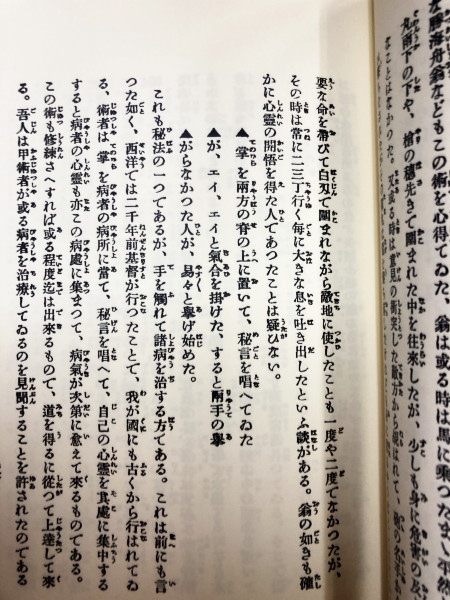 な勝海舟翁などもこの術を心得てゐた。翁は或る時は馬に乘つたまゝ平然
丸雨下の下や、槍の穂先きで圍まれた中を往來したが、少しも身に危害の及
なことはなかつた。又或る時は意見の衝突した敵方から覘はれて、
要な命を帶びて白刃で圍まれながら敵地に使したことも一度や二度でなかつたが、
その時は常に二三丁行く毎に大きな息を吐き出したといふ談がある。翁の如きも確
かに心靈の開悟を得た人であつたことは疑ひない。
▲掌を兩方の脊の上に置いて、秘言を唱へてゐた
▲が、エイ、エイと氣合を掛けた、すると兩手の擧
▲がらなかつた人が、易々と擧げ始めた。
これも秘法の一つであるが、手を觸れて諸病を治する方である。これは前にも言
つた如く、西洋では二千年前基督が行つたことで、我が國にも古くから行はれてゐ
る、術者は掌を病者の病所に當て、秘言を唱へて、自己の心靈を其處に集中する
すると病者の心靈も亦この病處に集まつて、病氣が次第に愈えて來るものである。
この術も修練さへすれば或る程度迄は出來るもので、道を得るに從つて上達して來
る。吾人は甲術者が或る病者を治療してゐるのを見聞することを許されたのである